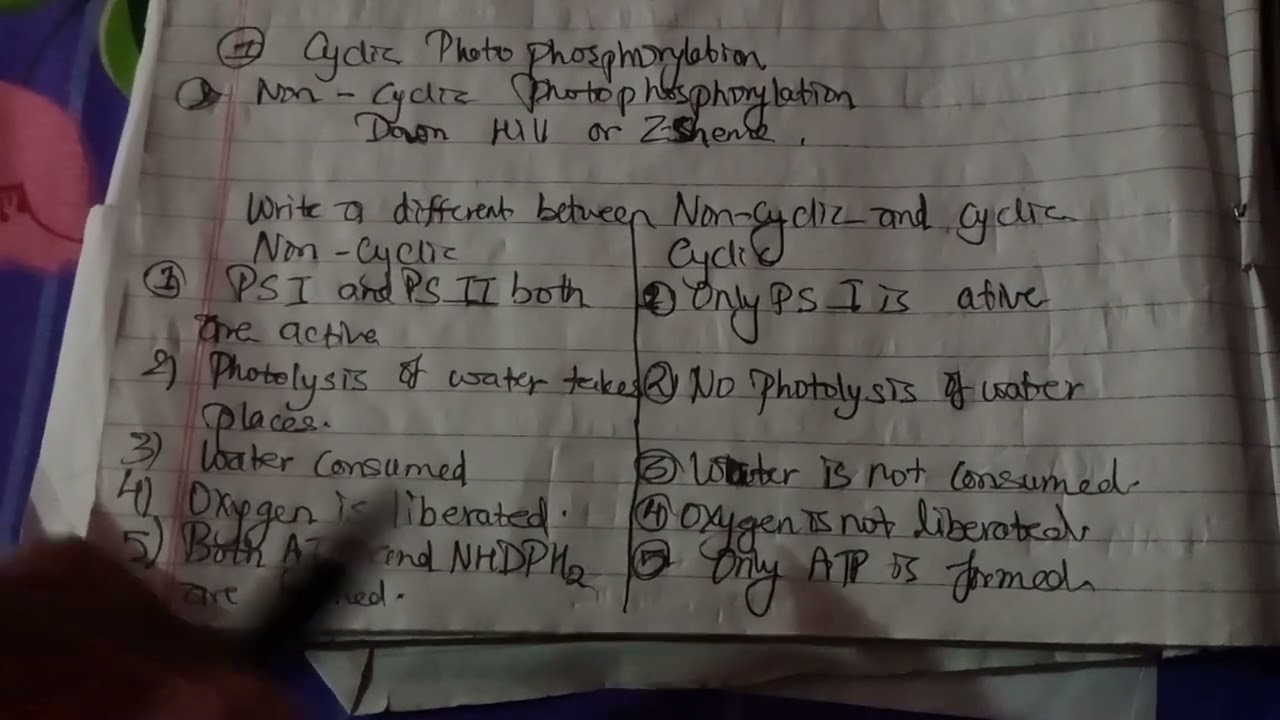 ① Cyclic Photo phosphorylation
Non - Cyclic Photophosphorylation
Down Hill or Z-sheme.
Write a different between Non-Cyclic and cyclic
Non - Cyclic Cyclic
① PS I and PS II both ① Only PS I is ative
are active
2) Photolysis of water takes ② No Photolysis of water
places.
3) Water Consumed ③ Water is not Consumed.
4) Oxygen is liberated. ④ Oxygen is not liberated.
5) Both and NHDPH2 ⑤ Only ATP is formed
are